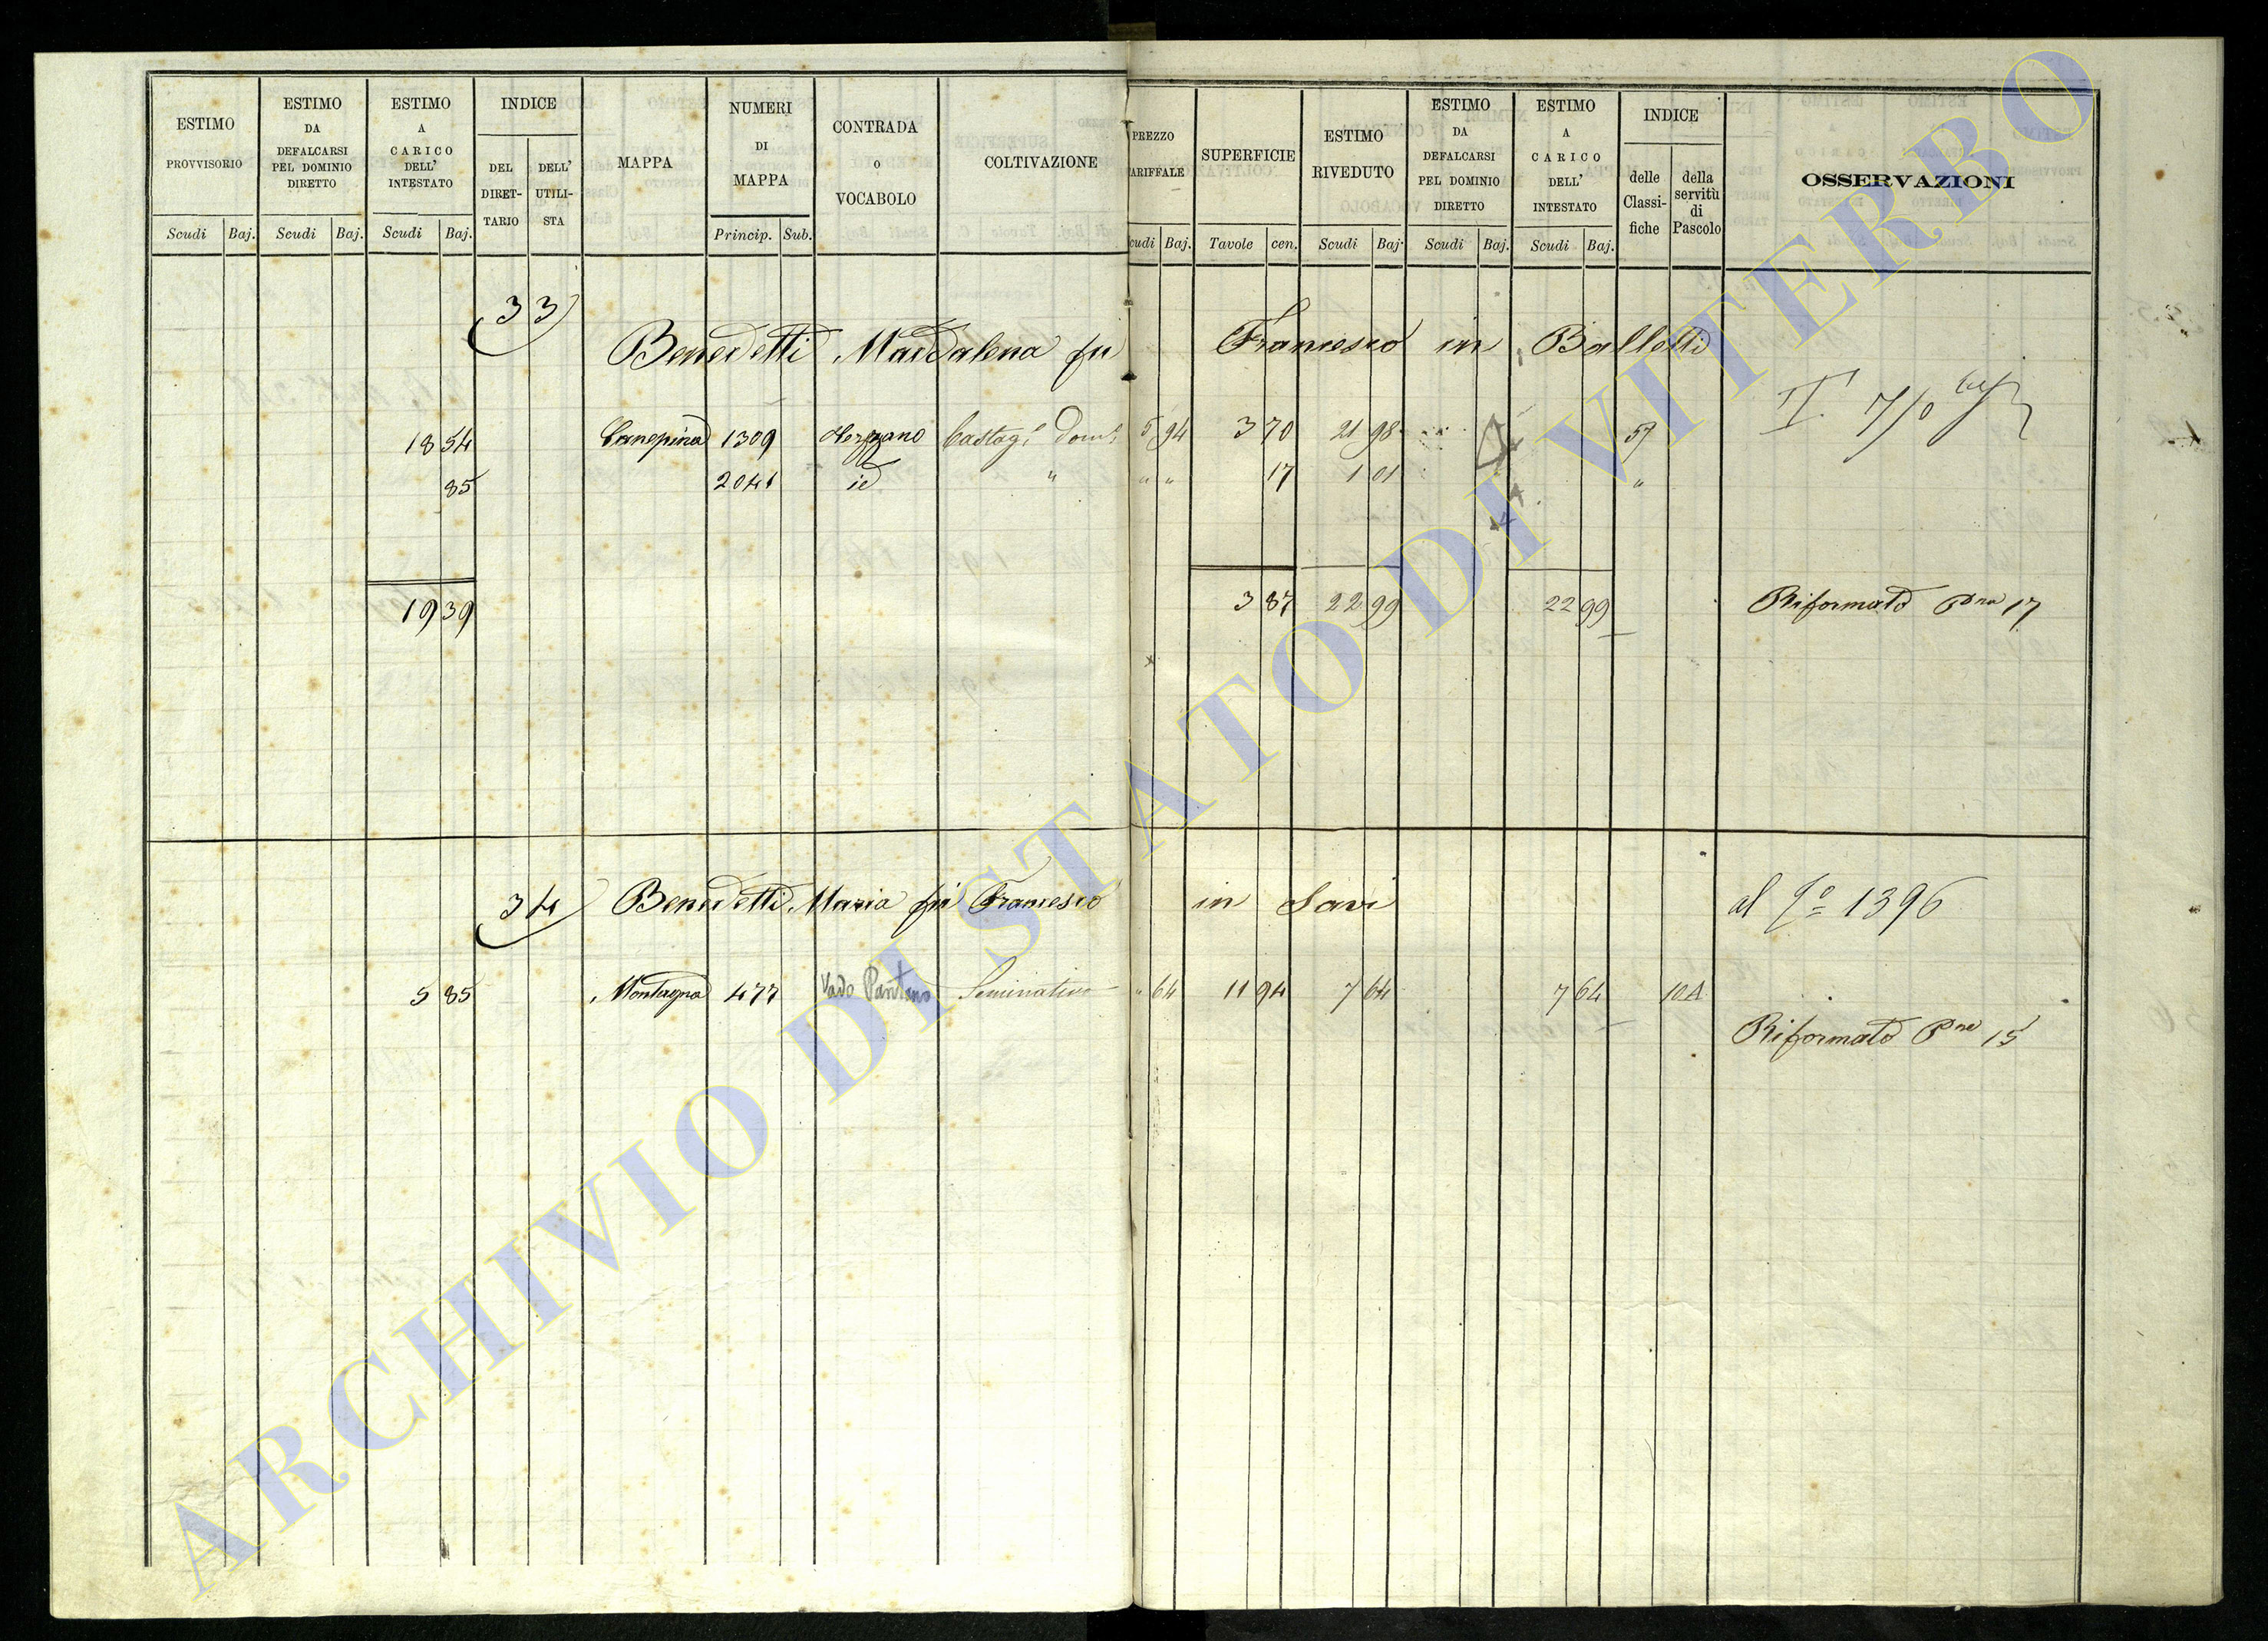 ESTIMO PROVVISORIO
ESTIMO DA DEFALCARSI PEL DOMINIO DIRETTO
ESTIMO A CARICO DELL' INTESTATO
INDICE
DEL DIRETTARIO
DELL' UTILISTA
MAPPA
NUMERI DI MAPPA
CONTRADA O VOCABOLO
COLTIVAZIONE
PREZZO
ARIFFALE
SUPERFICIE
ESTIMO RIVEDUTO
ESTIMO DA DEFALCARSI PEL DOMINIO DIRETTO
ESTIMO A CARICO DELL' INTESTATO
INDICE
delle Classifiche
della servitù di Pascolo
OSSERVAZIONI
Scudi Baj. Scudi Baj. Scudi Baj. Princip. Sub. cudi Baj. Tavole cen. Scudi Baj. Scudi Baj. Scudi Baj.
33
Benedetti Maddalena fu Francesco in Balletti
18 54 Canepina 1309 Castag. 5 94 3 70 21 98 57
85 2041 id " " " 17 1 01 "
19 39 3 87 22 99 22 99 Riformato 17
34 Benedetti Maria fu Francesco in Savi al 1396
5 85 Montagna 477 Vado Pantano Seminativo " 64 11 94 7 64 7 64 10A
Riformato 15
ARCHIVIO DI STATO DI VITERBO